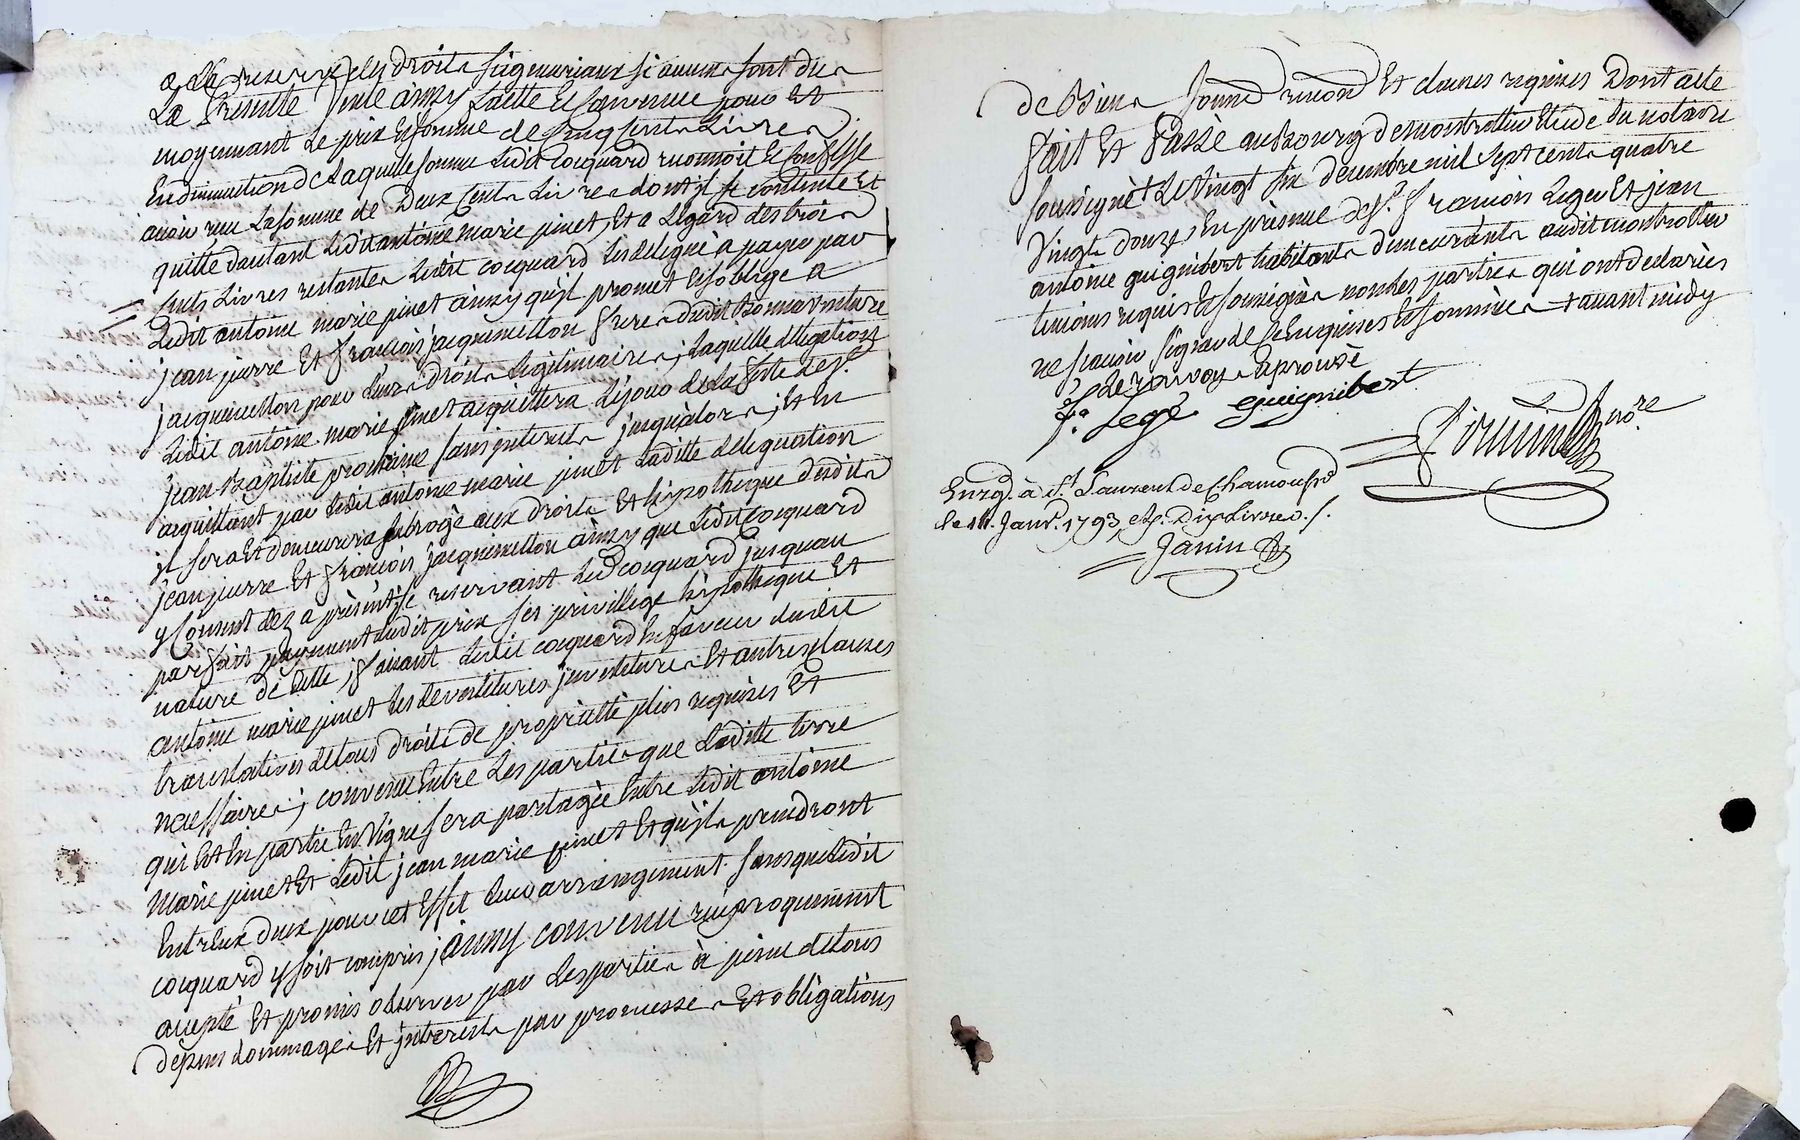 a la reserve des droits seigneuriaux si aucuns sont dus
La presente vente ainsy faitte et convenue pour et
moyennant le prix et somme de cinq cents Livres
En diminution de laquelle somme ledit Cocquard reconnoit et confesse
avoir reçu la somme de Deux Cents Livres dont il se contente et
quitte d'autant ledit antoine marie pinet, et a l'égard des trois
cents Livres restantes ledit cocquard les delegue a payer par
ledit antoine marie pinet ainsy qu'il promet et s'oblige a
jean pierre et françois jacquemetton freres dudit Bonnaventure
jacquemetton pour leurs droits legitimaires, laquelle délégation
ledit antoine marie pinet acquittera le jour de la fete de St.
jean Baptiste prochaine sans interets jusqu'alors; et en
acquittant par ledit antoine marie pinet laditte deleguation
il sera et demeurera subrogé aux droits et hypotheque desdits
jean pierre et françois jacquemetton ainsy que ledit Cocquard
y consent dez a présent, se reservant led. cocquard jusqu'au
parfait payement dudit prix ses privillege hypotheque et
nature de dette, faisant ledit cocquard en faveur dudit
antoine marie pinet les devestitures investitures et autres clauses
translatives de tous droits de propriette plus requises et
necessaires; convenu entre les parties que laditte terre
qui est en partie en vigne sera partagée entre ledit antoine
Marie pinet et ledit jean marie pinet et qu'ils prendront
entr'eux deux pour cet effet leur arrangement sans que ledit
cocquard y soit compris; ainsy convenu reciproquement
accepté et promis observer par les parties à peine de tous
depens dommages et interets par promesses et obligations
de Biens soumis renon et clauses requises Dont acte
fait et Passé au Bourg de montrottier Etude du notaire
soussigné Le vingt six decembre mil sept cents quatre
vingt douze, En présence de Sr. françois Leger et jean
antoine guignibert habitants demeurants audit montrottier
temoins requis et soussignés non les parties qui ont declarées
ne scavoir signer de ce Enquises et sommées avant midy
Le renvoy approuvé
f. Legé guignibert
nore.
Enrg. à St. Laurent de Chamousst
le 11. Janvr. 1793, rç. Dix Livres./.
Janin